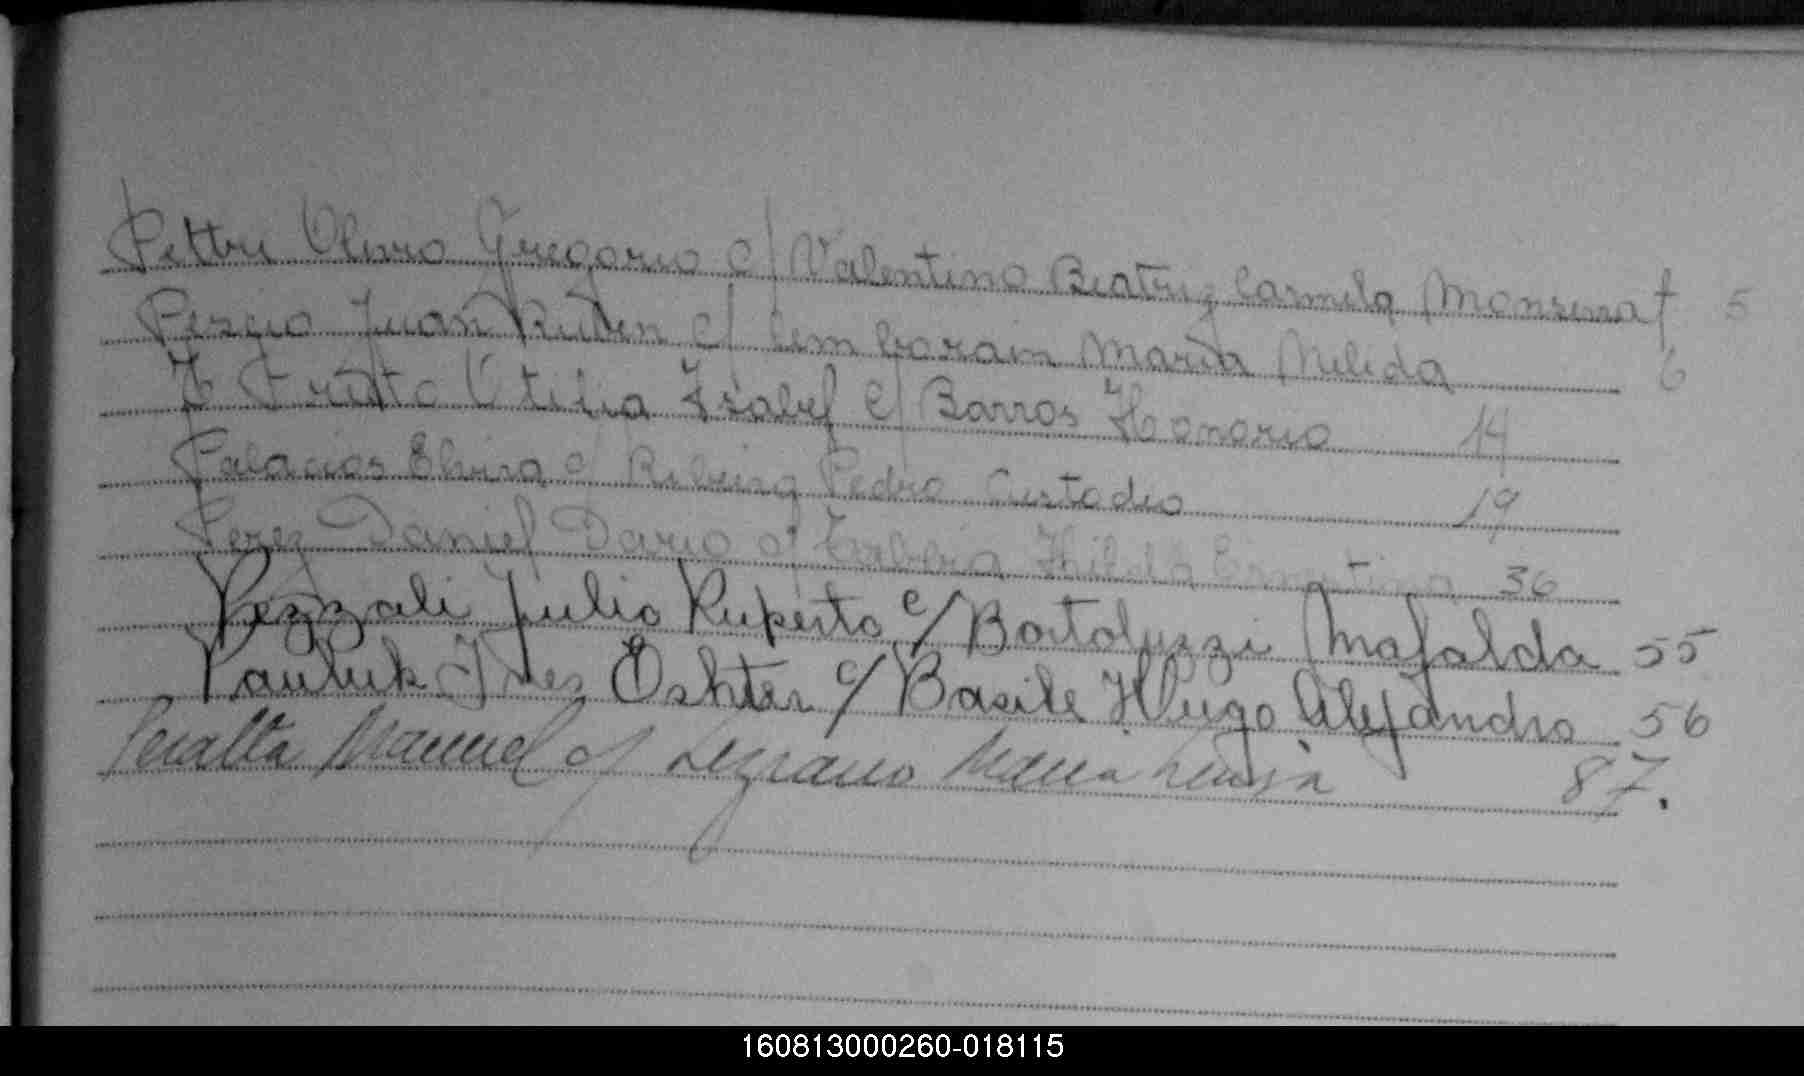 Pettri Gregorio c/ Valentino Beatriz Carmela Monserrat 5
Juan Ruben c/ Maria Nelida 6
Isabel c/ Barros Honorio 14
Palacios Elvira c/ Pedro Custodio 19
Perez Daniel Dario c/ Hilda Ernestina 36
Pezzali Julio Ruperto c/ Bortoluzzi Mafalda 55
Pauluk Ines Eshter c/ Basile Hugo Alejandro 56
Peralta Manuel c/ Lezcano Maria Luisa 87.
160813000260-018115